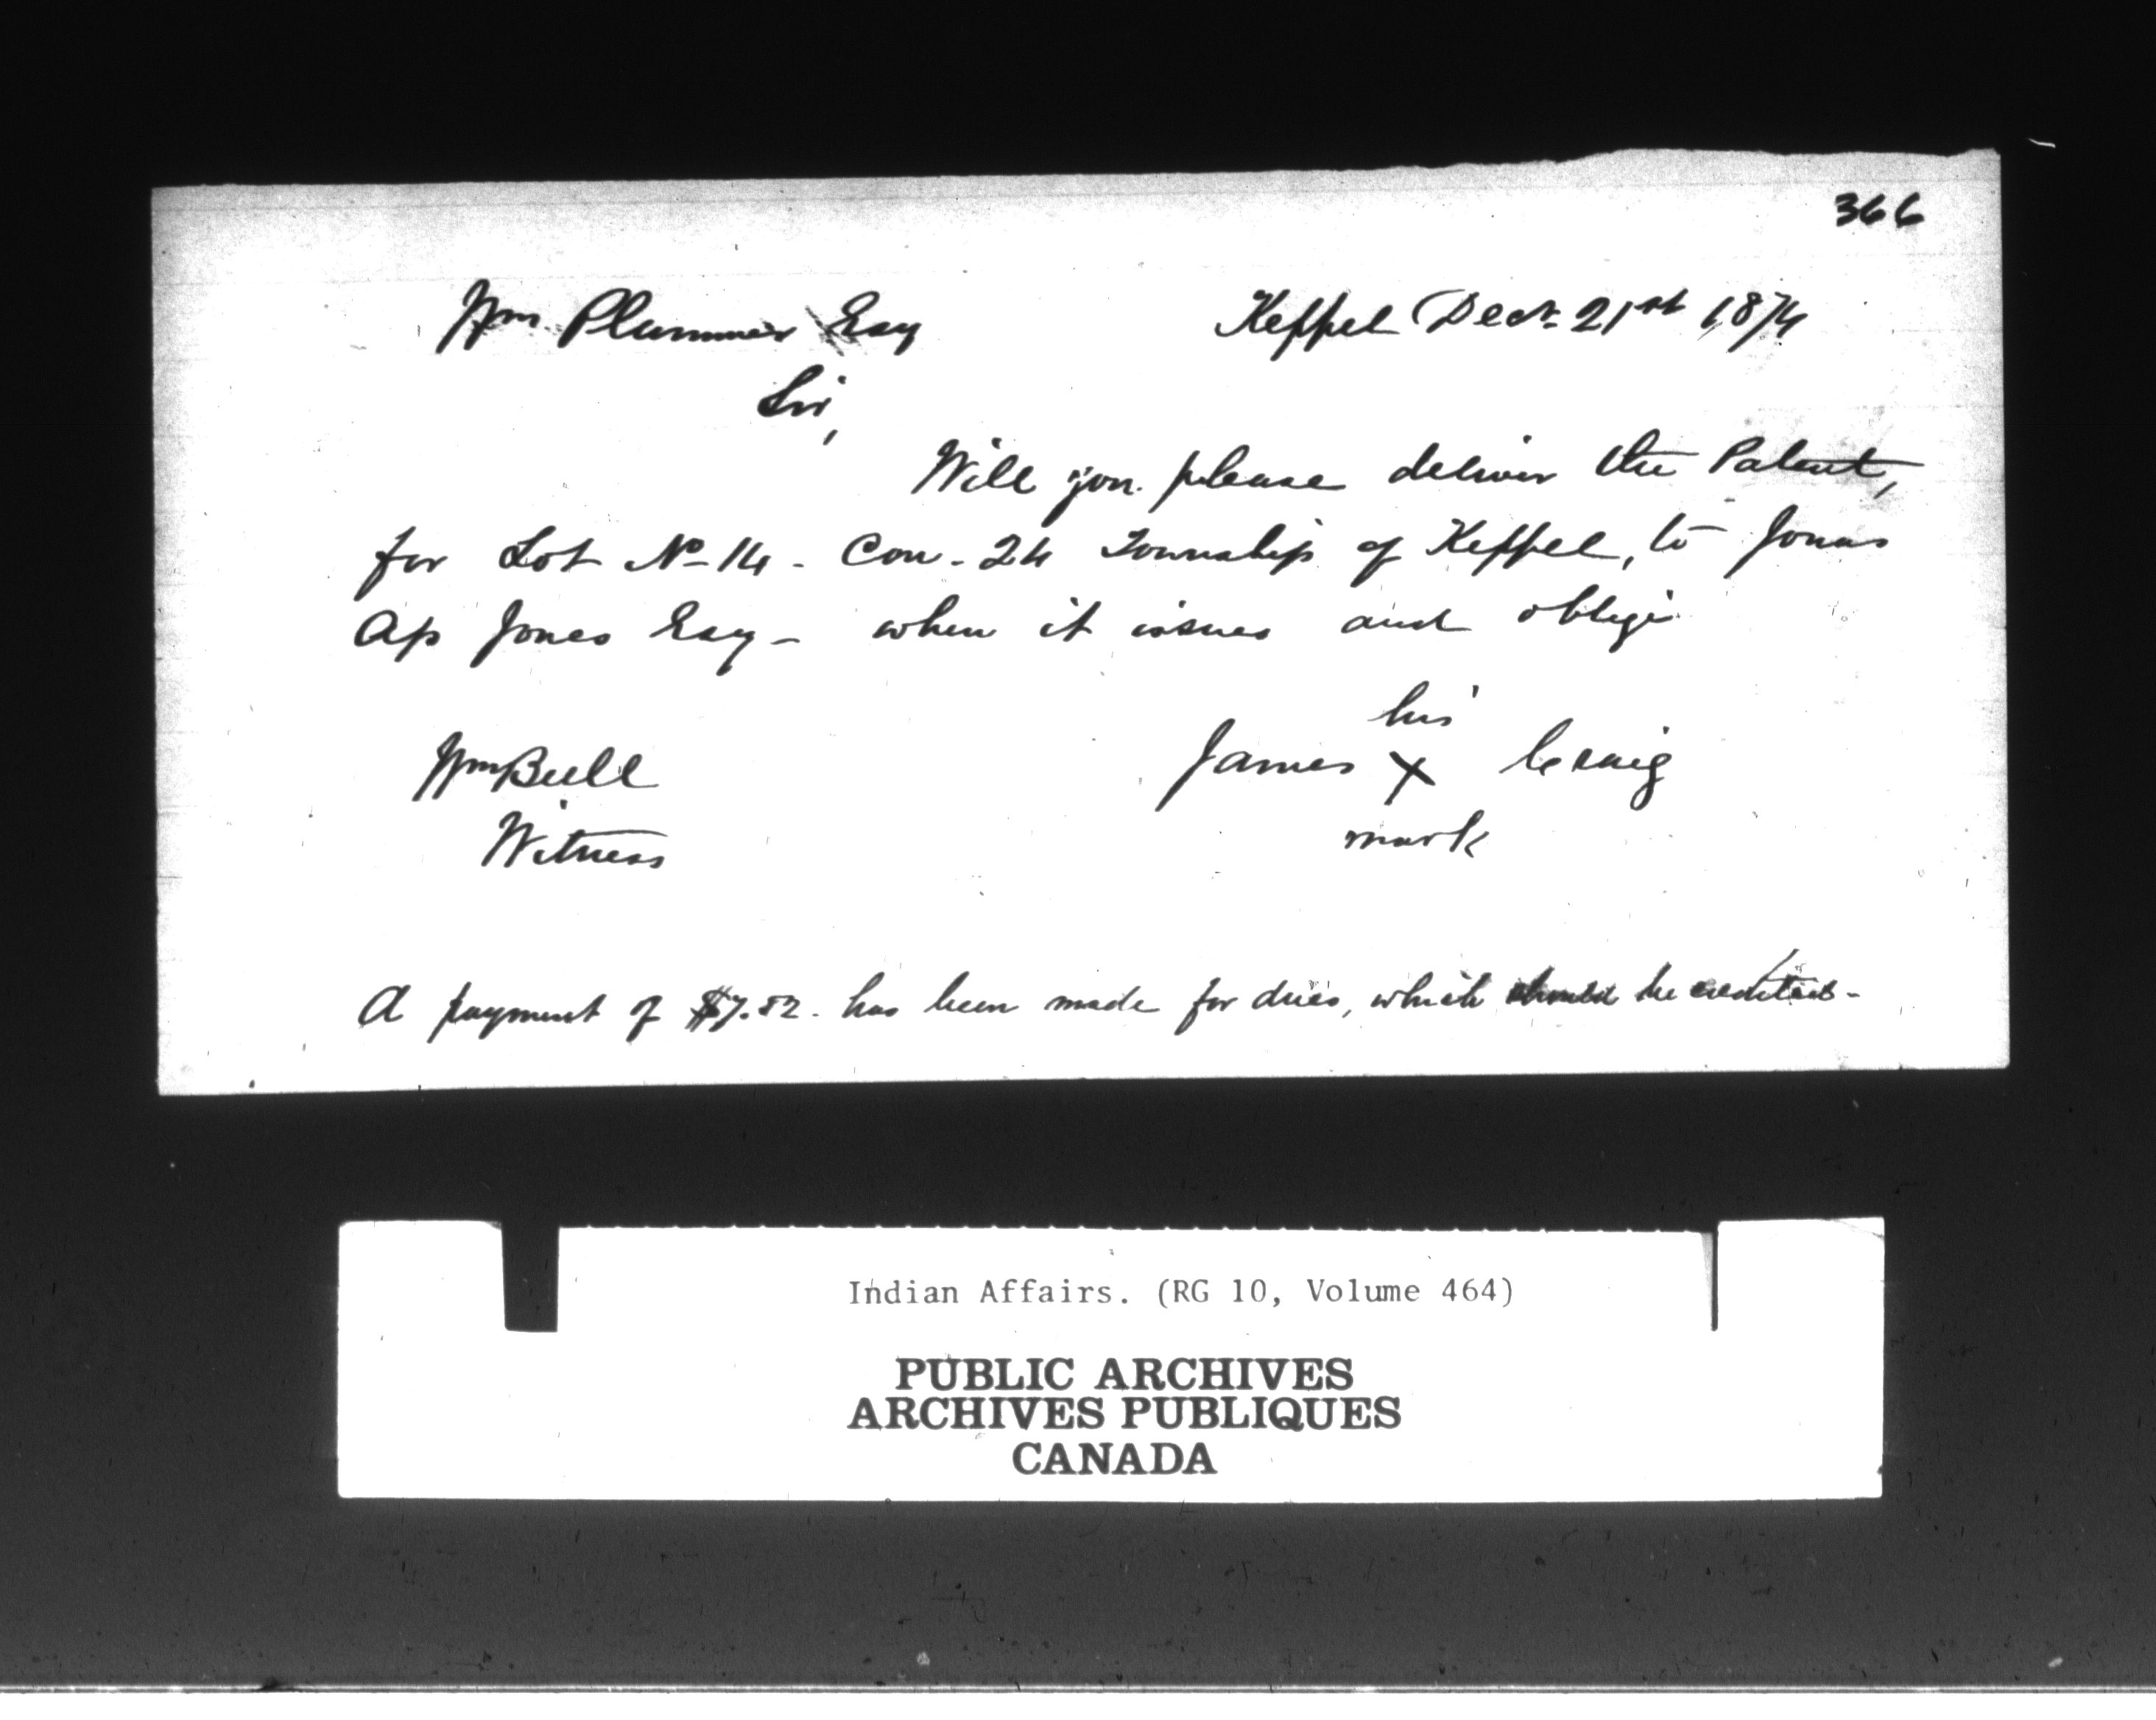 366
Wm Plummer Esq Keppel Decr 21st 1874
Sir,
Will you please deliver the Patent,
for Lot No 14 - Con - 24 Township of Keppel, to Jonas
Ap Jones Esq - when it issues and oblige
his
James X Craig
mark
Wm Bull
Witness
A payment of $7.52 has been made for dues, which should be credited -
Indian Affairs. (RG 10, Volume 464)
PUBLIC ARCHIVES
ARCHIVES PUBLIQUES
CANADA